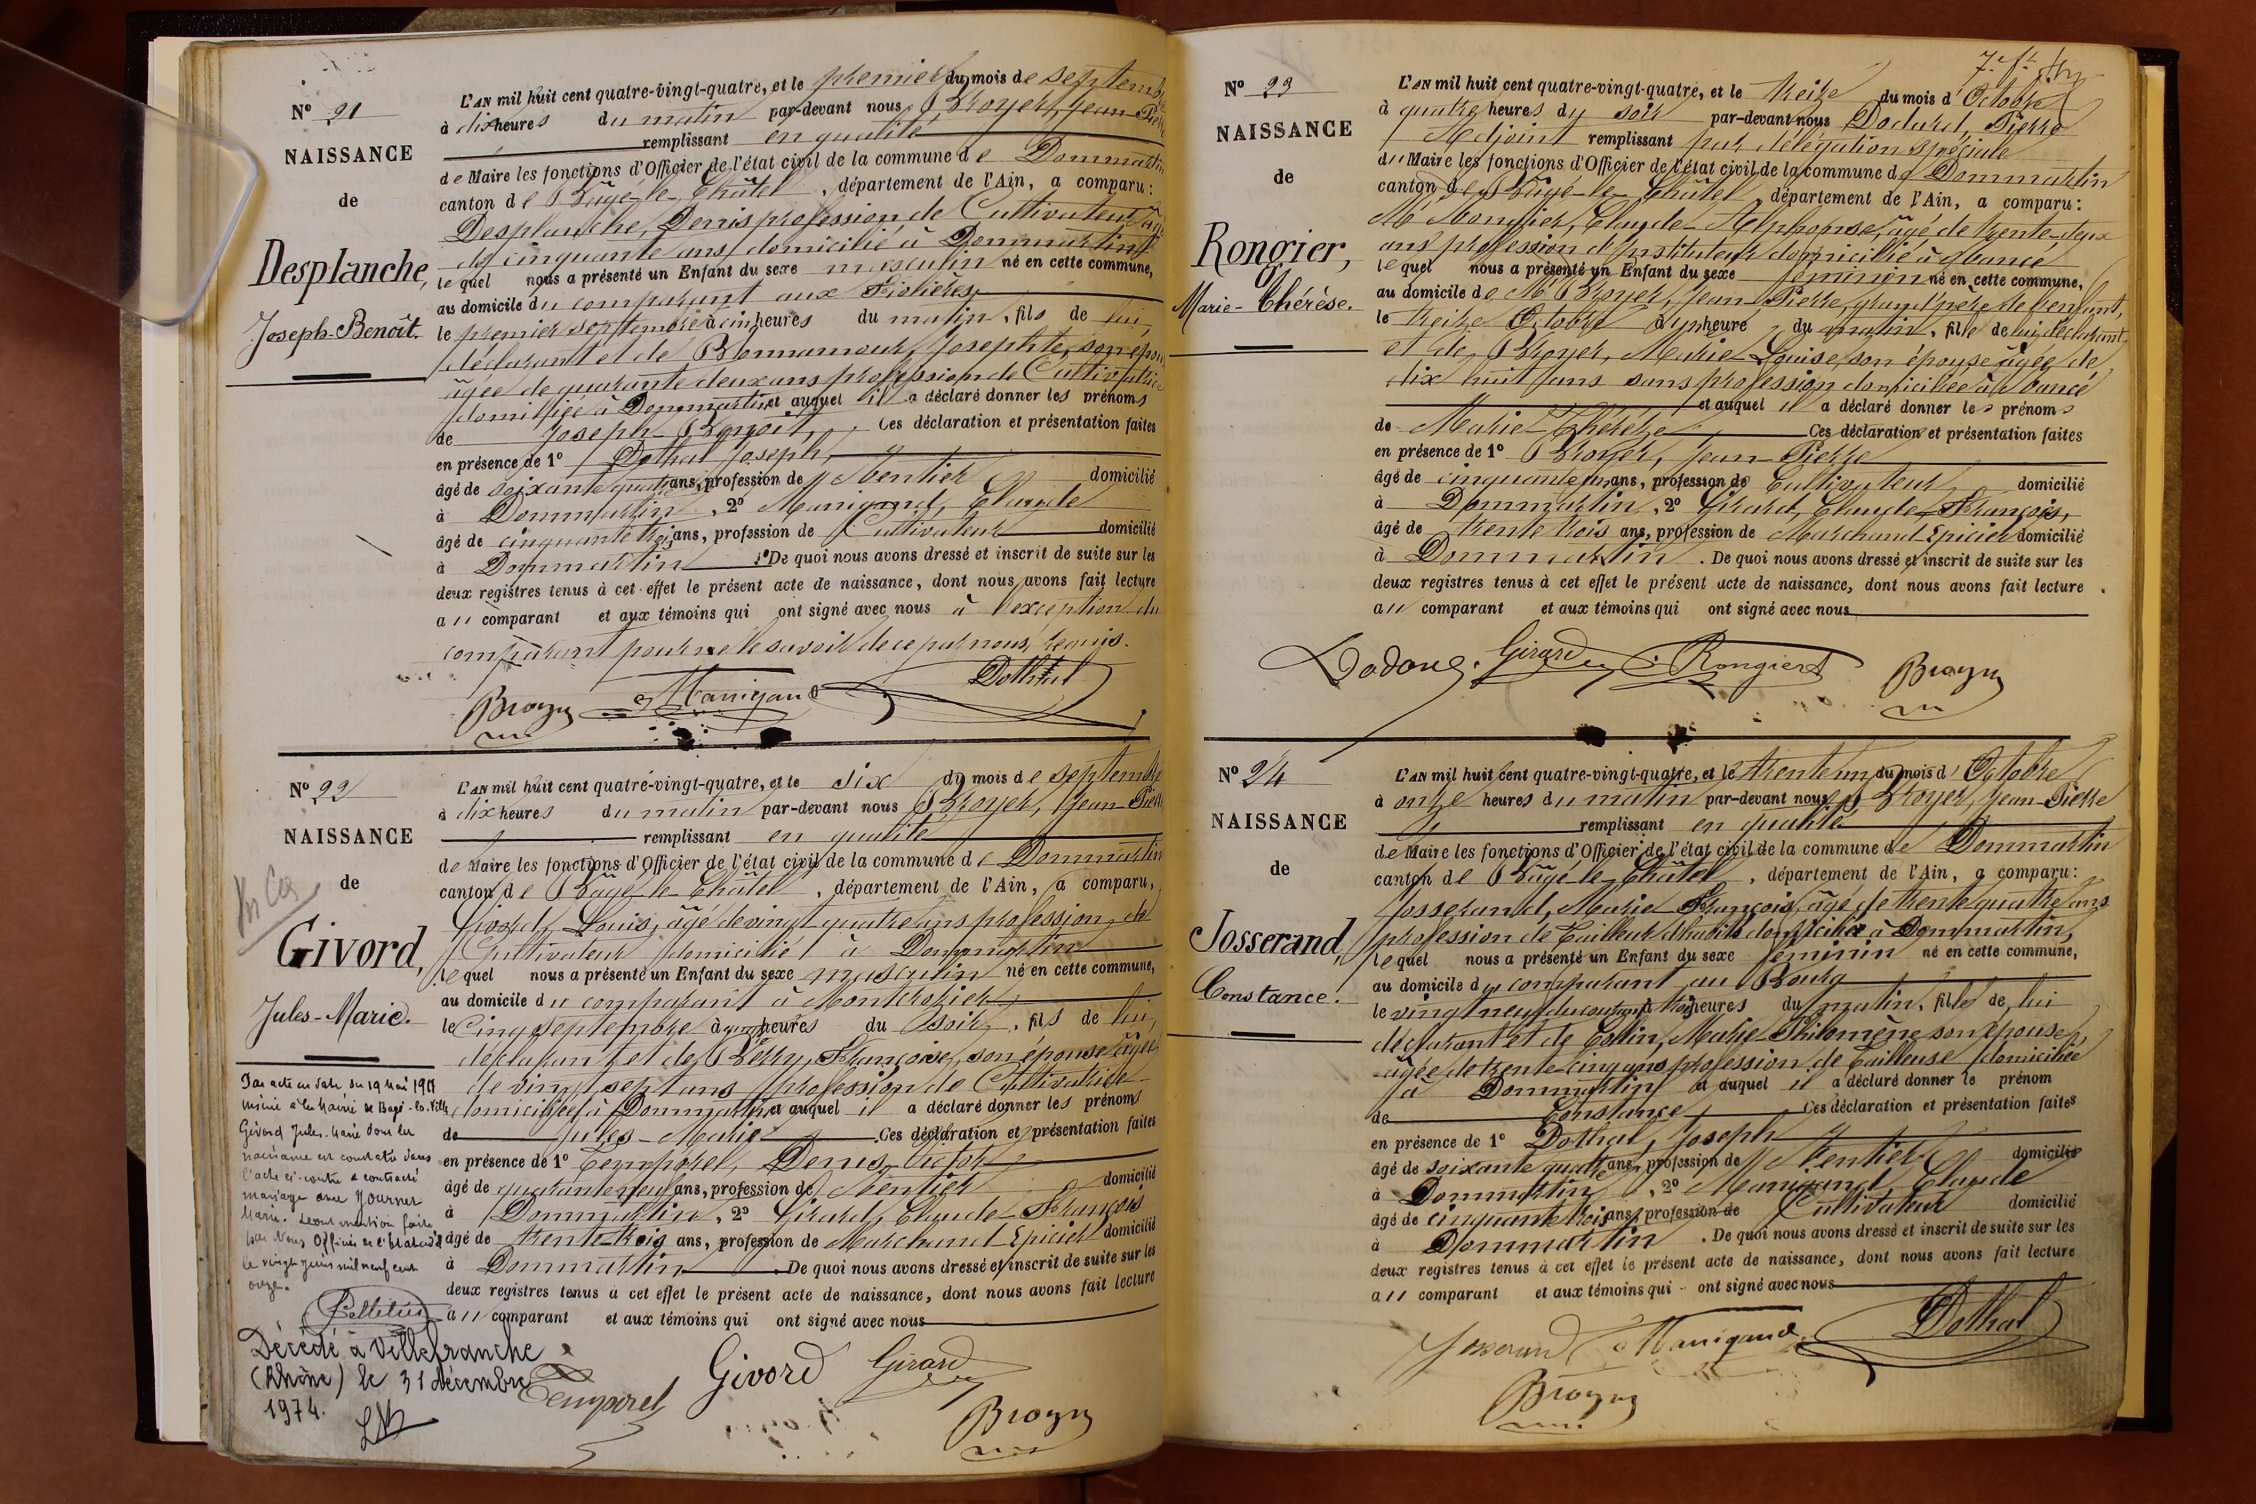 N° 21
NAISSANCE
de
Desplanche,
Joseph-Benoît.
L'AN mil huit cent quatre-vingt-quatre, et le premier du mois de septembre
à dix heures du matin par-devant nous Broyer, Jean-Pierre
remplissant en qualité
de Maire les fonctions d'Officier de l'état civil de la commune de Dommartin
canton de Bâgé-le-Châtel, département de l'Ain, a comparu:
Desplanche, Denis profession de Cultivateur, âgé
de cinquante ans domicilié à Dommartin
lequel nous a présenté un Enfant du sexe masculin né en cette commune,
au domicile du comparant aux
le premier septembre à cinq heures du matin, fils de lui,
déclarant et de Bonnamour, Josephte, son épouse
âgée de quarante deux ans profession de Cultivatrice
domiciliée à Dommartin et auquel il a déclaré donner les prénoms
de Joseph-Benoit. Ces déclaration et présentation faites
en présence de 1° Dothal Joseph,
âgé de soixante quatre ans, profession de Rentier domicilié
à Dommartin, 2° Manigand, Claude
âgé de cinquante trois ans, profession de Cultivateur domicilié
à Dommartin. De quoi nous avons dressé et inscrit de suite sur les
deux registres tenus à cet effet le présent acte de naissance, dont nous avons fait lecture
au comparant et aux témoins qui ont signé avec nous à l'exception du
comparant pour ne le savoir de ce par nous requis.
Broyer Manigand Dothal
N° 22
NAISSANCE
de
Givord,
Jules-Marie.
Par acte en date du 19 Mai 1911
inscrit à la Mairie de Bagé-la-Ville
Givord Jules-Marie dont la
naissance est constatée dans
l'acte ci-contre a contracté
mariage avec
Marie. Dont mention faite
par Nous Officier de l'état civil
le vingt juin mil neuf cent
onze.
Pelletier
Décédé à Villefranche
(Rhône) le 31 décembre
1974.
L'AN mil huit cent quatre-vingt-quatre, et le six du mois de septembre
à dix heures du matin par-devant nous Broyer, Jean-Pierre
remplissant en qualité
de Maire les fonctions d'Officier de l'état civil de la commune de Dommartin
canton de Bâgé-le-Châtel, département de l'Ain, a comparu,
Givord, Louis, âgé de vingt quatre ans profession de
Cultivateur domicilié à Dommartin
lequel nous a présenté un Enfant du sexe masculin né en cette commune,
au domicile du comparant à Montcrozier
le Cinq septembre à heures du soir, fils de lui,
déclarant et de Berry, Françoise, son épouse âgée
de vingt sept ans profession de Cultivatrice
domiciliée à Dommartin et auquel il a déclaré donner les prénoms
de Jules-Marie. Ces déclaration et présentation faites
en présence de 1° Temporel, Denis-Victor
âgé de quarante neuf ans, profession de Rentier domicilié
à Dommartin, 2° Girard, Claude-François
âgé de trente-trois ans, profession de Marchand Epicier domicilié
à Dommartin. De quoi nous avons dressé et inscrit de suite sur les
deux registres tenus à cet effet le présent acte de naissance, dont nous avons fait lecture
au comparant et aux témoins qui ont signé avec nous
Temporel Givord Girard
Broyer
N° 23
NAISSANCE
de
Rongier,
Marie-Thérèse.
L'AN mil huit cent quatre-vingt-quatre, et le treize du mois d'Octobre
à quatre heures du soir par-devant nous Dodard, Pierre
Adjoint remplissant par délégation spéciale
du Maire les fonctions d'Officier de l'état civil de la commune de Dommartin
canton de Bâgé-le-Châtel département de l'Ain, a comparu:
Mr Rongier, Claude-Alphonse, âgé de trente-deux
ans profession d'Instituteur domicilié à
lequel nous a présenté un Enfant du sexe féminin né en cette commune,
au domicile de Mr Broyer, Jean-Pierre, grand'père de l'enfant,
le treize Octobre à une heure du matin, fille de lui, déclarant,
et de Broyer, Marie-Louise, son épouse âgée de
dix huit ans sans profession domiciliée à
et auquel il a déclaré donner les prénoms
de Marie-Thérèse Ces déclaration et présentation faites
en présence de 1° Broyer, Jean-Pierre
âgé de cinquante ans, profession de Cultivateur domicilié
à Dommartin, 2° Girard, Claude-François,
âgé de trente trois ans, profession de Marchand Epicier domicilié
à Dommartin. De quoi nous avons dressé et inscrit de suite sur les
deux registres tenus à cet effet le présent acte de naissance, dont nous avons fait lecture
au comparant et aux témoins qui ont signé avec nous
Girard Rongier Broyer
N° 24
NAISSANCE
de
Josserand,
Constance.
L'AN mil huit cent quatre-vingt-quatre, et le trente un du mois d'Octobre
à onze heures du matin par-devant nous Broyer, Jean-Pierre
remplissant en qualité
de Maire les fonctions d'Officier de l'état civil de la commune de Dommartin
canton de Bâgé-le-Châtel, département de l'Ain, a comparu:
Josserand, Marie-François, âgé de trente quatre ans
profession de Tailleur d'habits domicilié à Dommartin,
lequel nous a présenté un Enfant du sexe féminin né en cette commune,
au domicile du comparant au Bourg
le vingt neuf du courant à trois heures du matin, fille de lui
déclarant et de Collin, Marie-Philomène son épouse,
âgée de trente-cinq ans profession de Tailleuse domiciliée
à Dommartin et auquel il a déclaré donner le prénom
de Constance Ces déclaration et présentation faites
en présence de 1° Dothal, Joseph
âgé de soixante quatre ans, profession de Rentier domicilié
à Dommartin, 2° Manigand, Claude
âgé de cinquante trois ans, profession de Cultivateur domicilié
à Dommartin. De quoi nous avons dressé et inscrit de suite sur les
deux registres tenus à cet effet le présent acte de naissance, dont nous avons fait lecture
au comparant et aux témoins qui ont signé avec nous
Josserand Manigand Dothal
Broyer